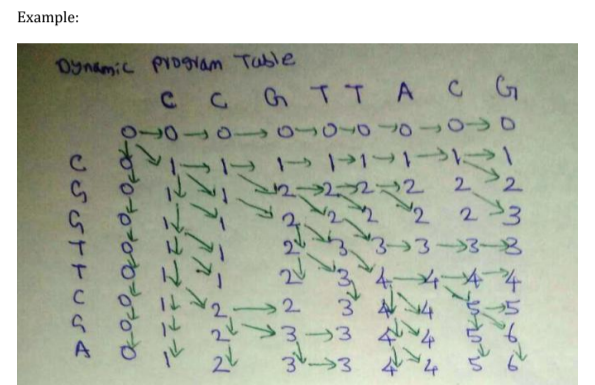 Example:
Dynamic program Table
C C G T T A C G
0 → 0 → 0 → 0 → 0 → 0 → 0 → 0 → 0
C 0 1 1 1 1 1 1 1 1
G 0 1 1 2 2 2 2 2 2
G 0 1 1 2 2 2 2 2 3
T 0 1 1 2 3 3 3 3 3
T 0 1 1 2 3 4 4 4 4
C 0 1 2 2 3 4 4 5 5
G 0 1 2 3 3 4 4 5 6
A 0 1 2 3 3 4 4 5 6